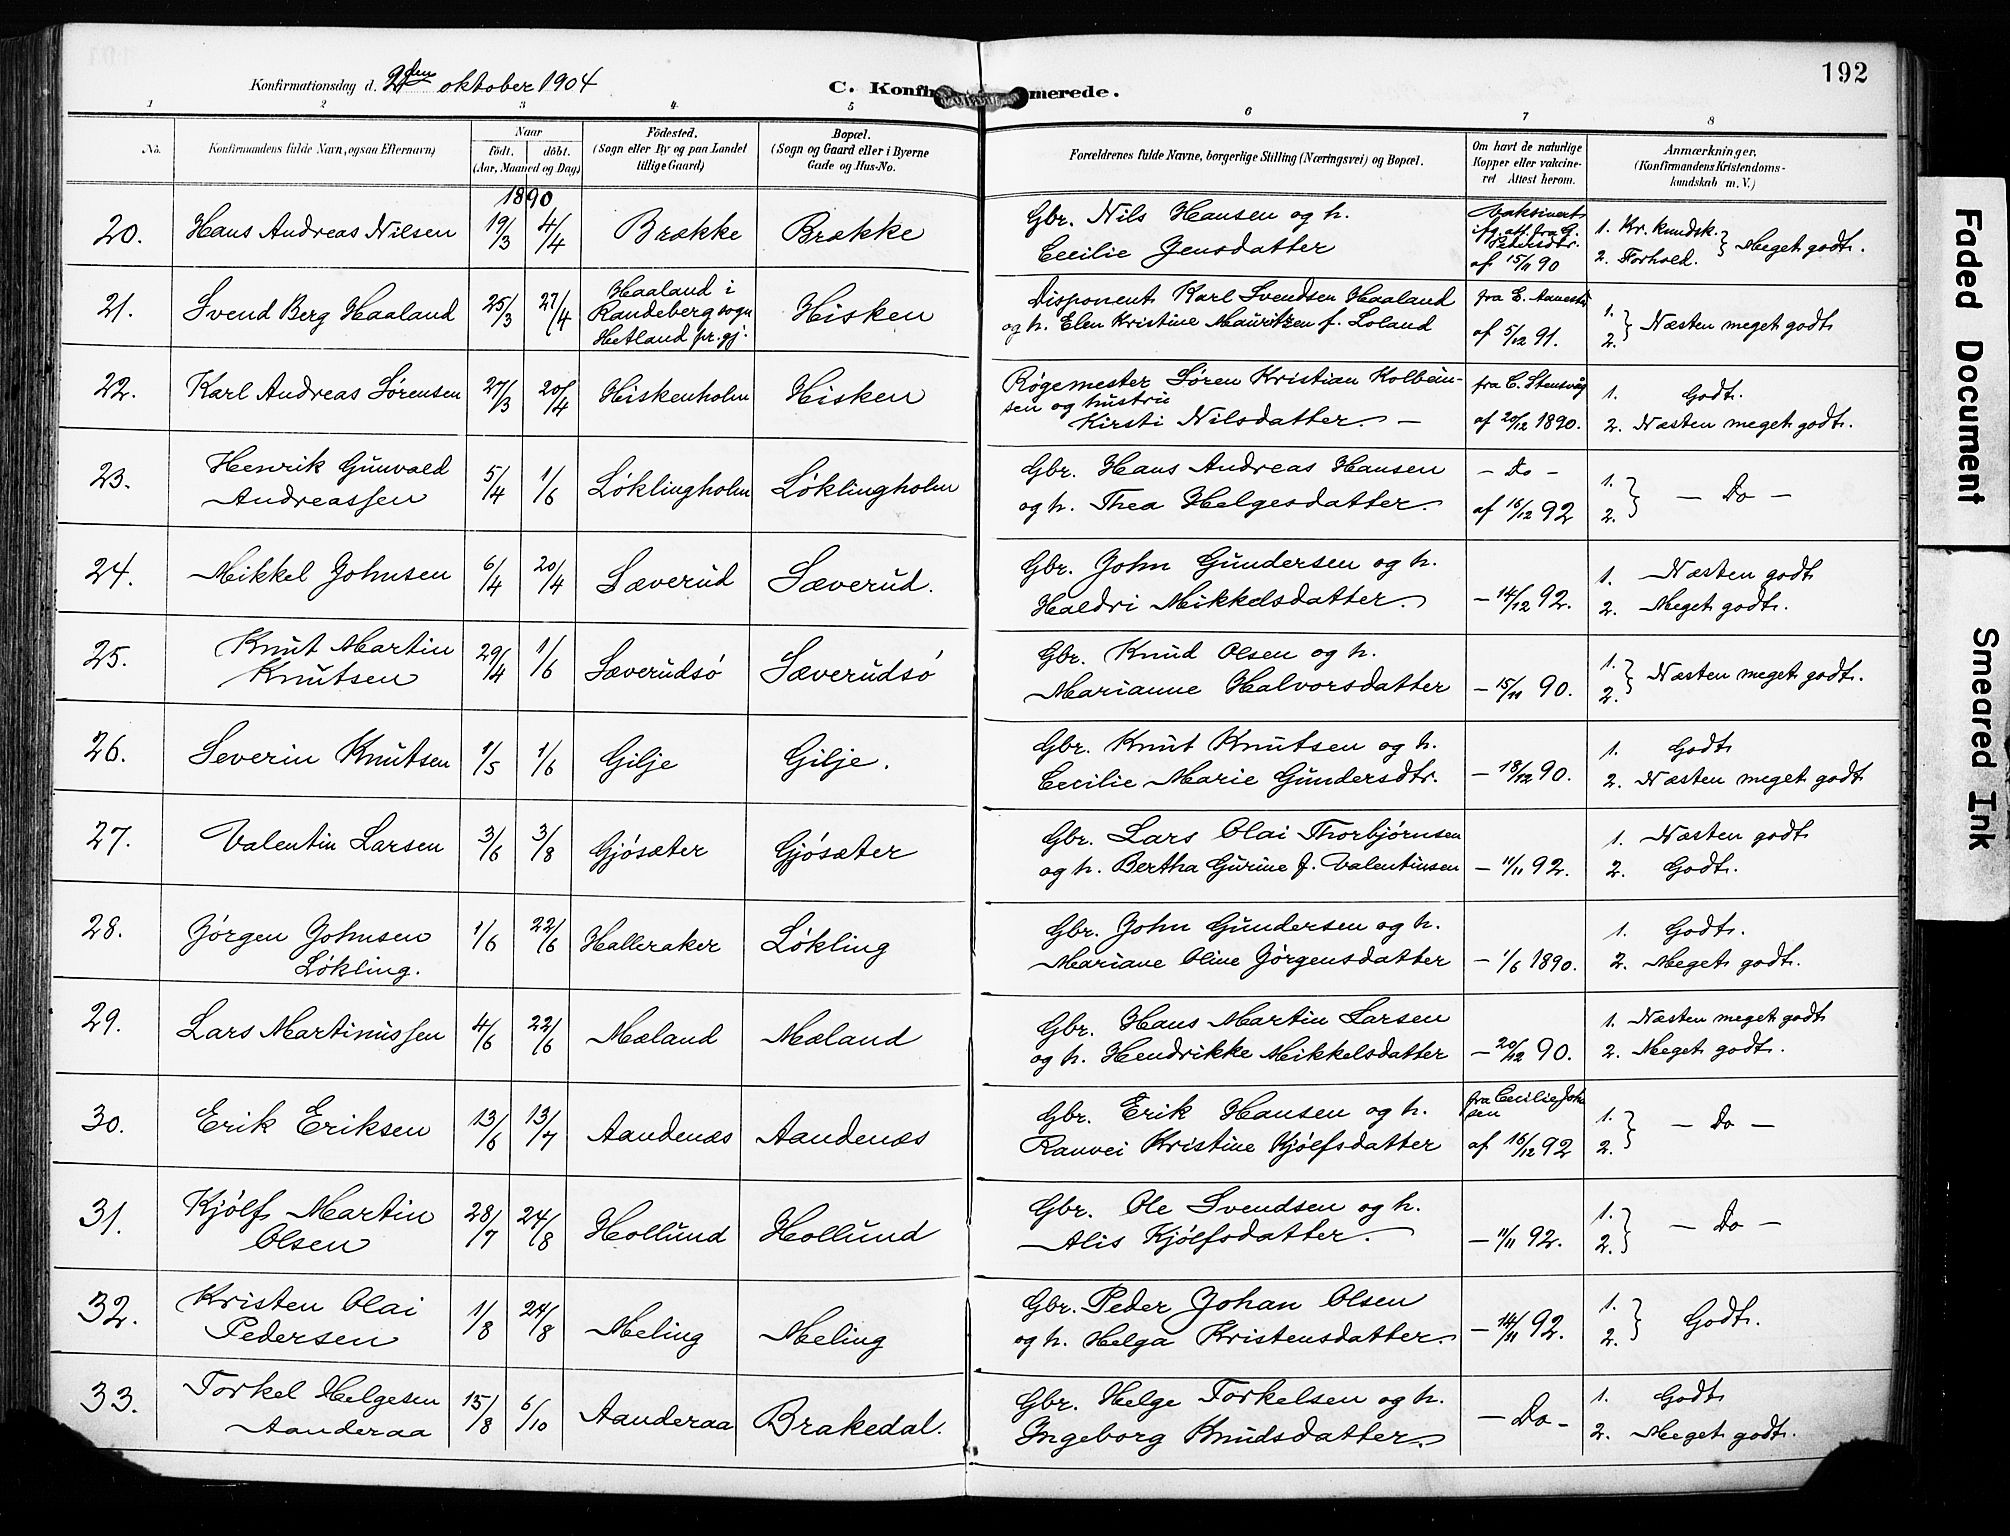 192
Konfirmationsdag d. 2den oktober 1904
C. Konfirmerede.
1 2 3 4 5 6 7 8
No. Konfirmandens fulde Navn, ogsaa Efternavn) Naar födt. döbt. (Aar, Maaned og Dag) Födested. (Sogn eller By og paa Landet tillige Gaard) Bopæl. (Sogn og Gaard eller i Byerne Gade og Hus-No. Forældrenes fulde Navne, borgerlige Stilling (Næringsvei) og Bopæl. Om havt de naturlige Kopper eller vakcineret Attest herom. Anmærkninger, (Konfirmandens Kristendomskundskab m. V.)
1890
20. Hans Andreas Nilsen 19/3 4/4 Brække Brække Gbr. Nils Hansen og h. Cecilie Jensdatter Vaksinert ifg. att. fra G. af 15/11 90 1. Kr. kundsk. 2. Forhold. } Meget godt.
21. Svend Berg Haaland 25/3 27/4 Haaland i Randeberg sogn Hetland pr.gj. Hisken Disponent Karl Svendsen Haaland og h. Elen Kristine Mauritzen f. Loland fra E. af 5/12 91. 1. 2. } Næsten meget godt
22. Karl Andreas Sørensen 27/3 20/4 Hiskenholm Hisken Røgemester Søren Kristian Kolbeinsen og hustru Kirsti Nilsdatter. — fra C. Stensvåg af 20/12 1890. 1. Godt. 2. Næsten meget godt.
23. Henrik Gunvald Andreassen 5/4 1/6 Løklingholm Løklingholm Gbr. Hans Andreas Hansen og h. Thea Helgesdatter. — Do — af 16/12 92 1. 2. } — Do —
24. Mikkel Johnsen 6/4 20/4 Sæverud Sæverud. Gbr. John Gundersen og h. Haldri Mikkelsdatter. — 14/12 92. 1. Næsten godt 2. Meget godt.
25. Knut Martin Knutsen 29/4 1/6 Sæverudsø Sæverudsø Gbr. Knud Olsen og h. Marianne Halvorsdatter — 15/11 90. 1. 2. } Næsten meget godt.
26. Severin Knutsen 1/5 1/6 Gilje Gilje. Gbr. Knut Knutsen og h. Cecilie Marie Gundersdtr. — 18/12 90. 1. Godt 2. Næsten meget godt
27. Valentin Larsen 3/6 3/8 Gjøsæter Gjøsæter Gbr. Lars Olai Thorbjørnsen og h. Bertha Gurine f. Valentinsen — 11/11 92. 1. Næsten godt 2. Godt.
28. Jørgen Johnsen Løkling. 1/6 22/6 Halleraker Løkling Gbr. John Gundersen og h. Mariane Oline Jørgensdatter — 1/6 1890. 1. Godt. 2. Meget godt.
29. Lars Martinussen 4/6 22/6 Mæland Mæland Gbr. Hans Martin Larsen og h. Hendrikke Mikkelsdatter — 20/12 90. 1. Næsten meget godt 2. Meget godt.
30. Erik Eriksen 13/6 13/7 Aandenæs Aandenæs Gbr. Erik Hansen og h. Ranvei Kristine Kjølfsdatter fra Cecilie Johsen af 16/12 92 1. 2. } — Do —
31. Kjølf Martin Olsen 28/7 24/8 Hollund Hollund Gbr. Ole Svendsen og h. Alis Kjølfsdatter. — 11/11 92. 1. 2. } — Do —
32. Kristen Olai Pedersen 1/8 24/8 Meling Meling Gbr. Peder Johan Olsen og h. Helga Kristensdatter. — 14/11 92. 1. 2. } Godt.
33. Torkel Helgesen Aanderaa 15/8 6/10 Aanderaa Brakedal. Gbr. Helge Torkelsen og h. Ingeborg Knudsdatter. — Do — 1. Godt 2. Meget godt.
Faded Document
Smeared Ink